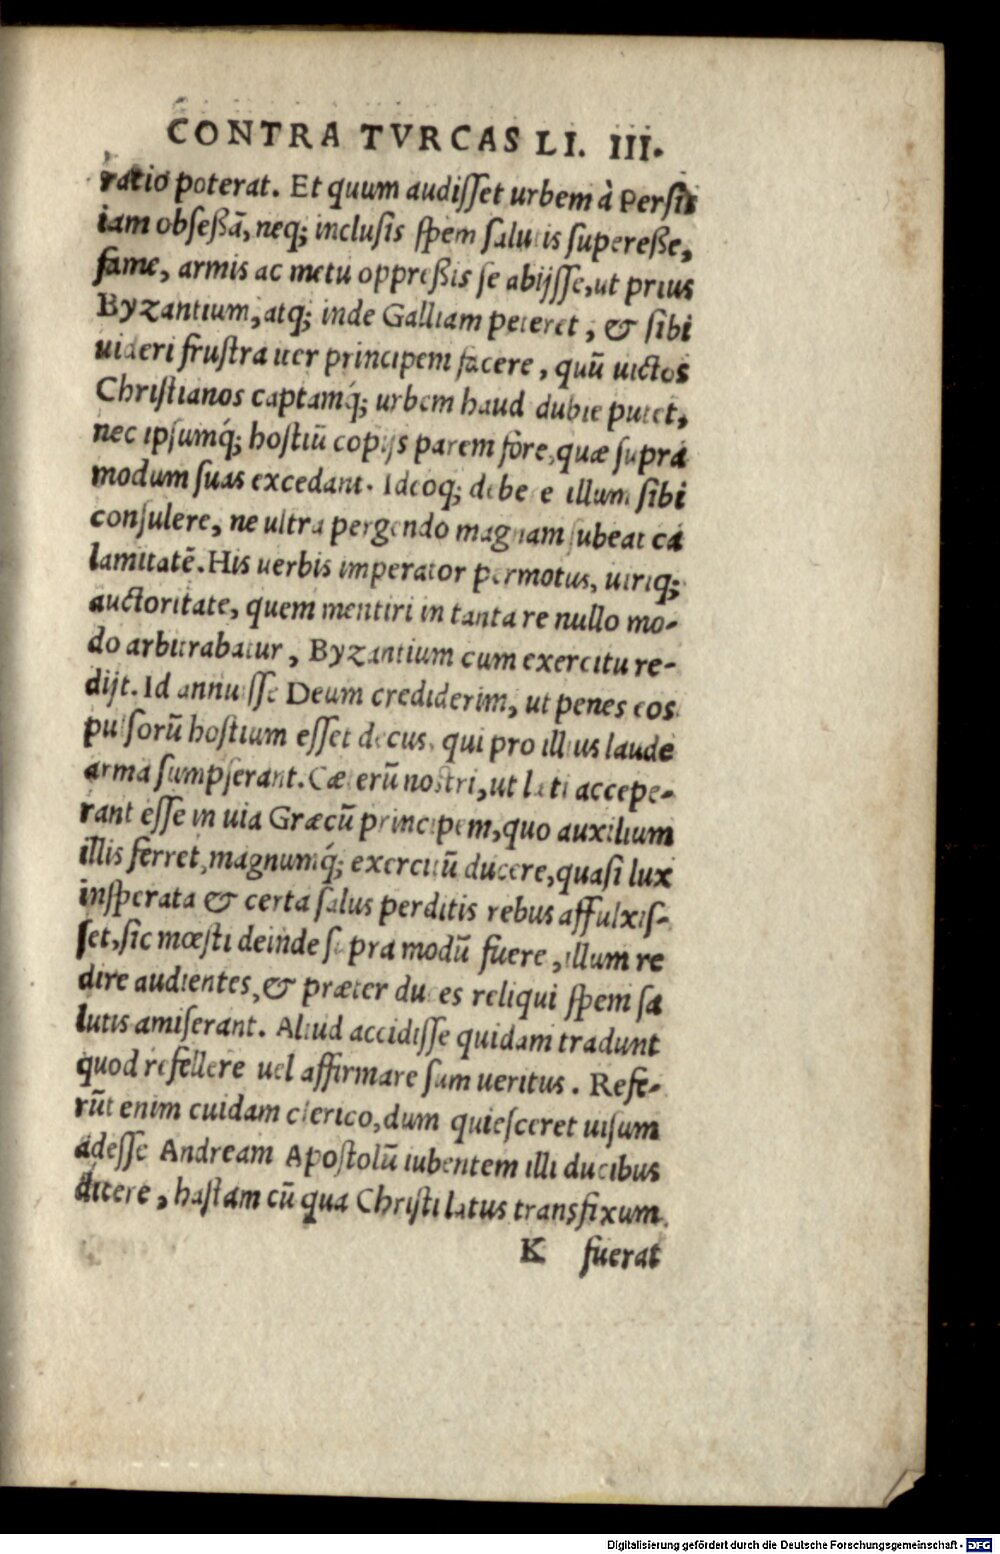 CONTRA TVRCAS LI. III.
ratio poterat. Et quum audisset urbem à Persis
iam obseßã, neq; inclusis spem salutis supereße,
fame, armis ac metu oppreßis se abijsse, ut prius
Byzantium, atq; inde Galliam peteret, & sibi
uideri frustra uer principem facere, quũ uictos
Christianos captamq́; urbem haud dubie putet,
nec ipsumq́; hostiũ copijs parem fore, quæ supra
modum suas excedant. Ideoq; debere illum sibi
consulere, ne ultra pergendo magnam subeat ca
lamitatẽ. His uerbis imperator permotus, uiriq;
auctoritate, quem mentiri in tanta re nullo mo-
do arbitrabatur, Byzantium cum exercitu re-
dijt. Id annuisse Deum crediderim, ut penes eos
pulsorũ hostium esset decus, qui pro illius laude
arma sumpserant. Cæterũ nostri, ut læti accepe-
rant esse in uia Græcũ principem, quo auxilium
illis ferret, magnumq́; exercitũ ducere, quasi lux
insperata & certa salus perditis rebus affulxis-
set, sic mœsti deinde supra modũ fuere, illum re
dire audientes, & præter duces reliqui spem sa
lutis amiserant. Aliud accidisse quidam tradunt
quod refellere uel affirmare sum ueritus. Refe-
rũt enim cuidam clerico, dum quiesceret uisum
adesse Andream Apostolũ iubentem illi ducibus
dicere, hastam cũ qua Christi latus transfixum
K fuerat
Digitalisierung gefördert durch die Deutsche Forschungsgemeinschaft - DFG